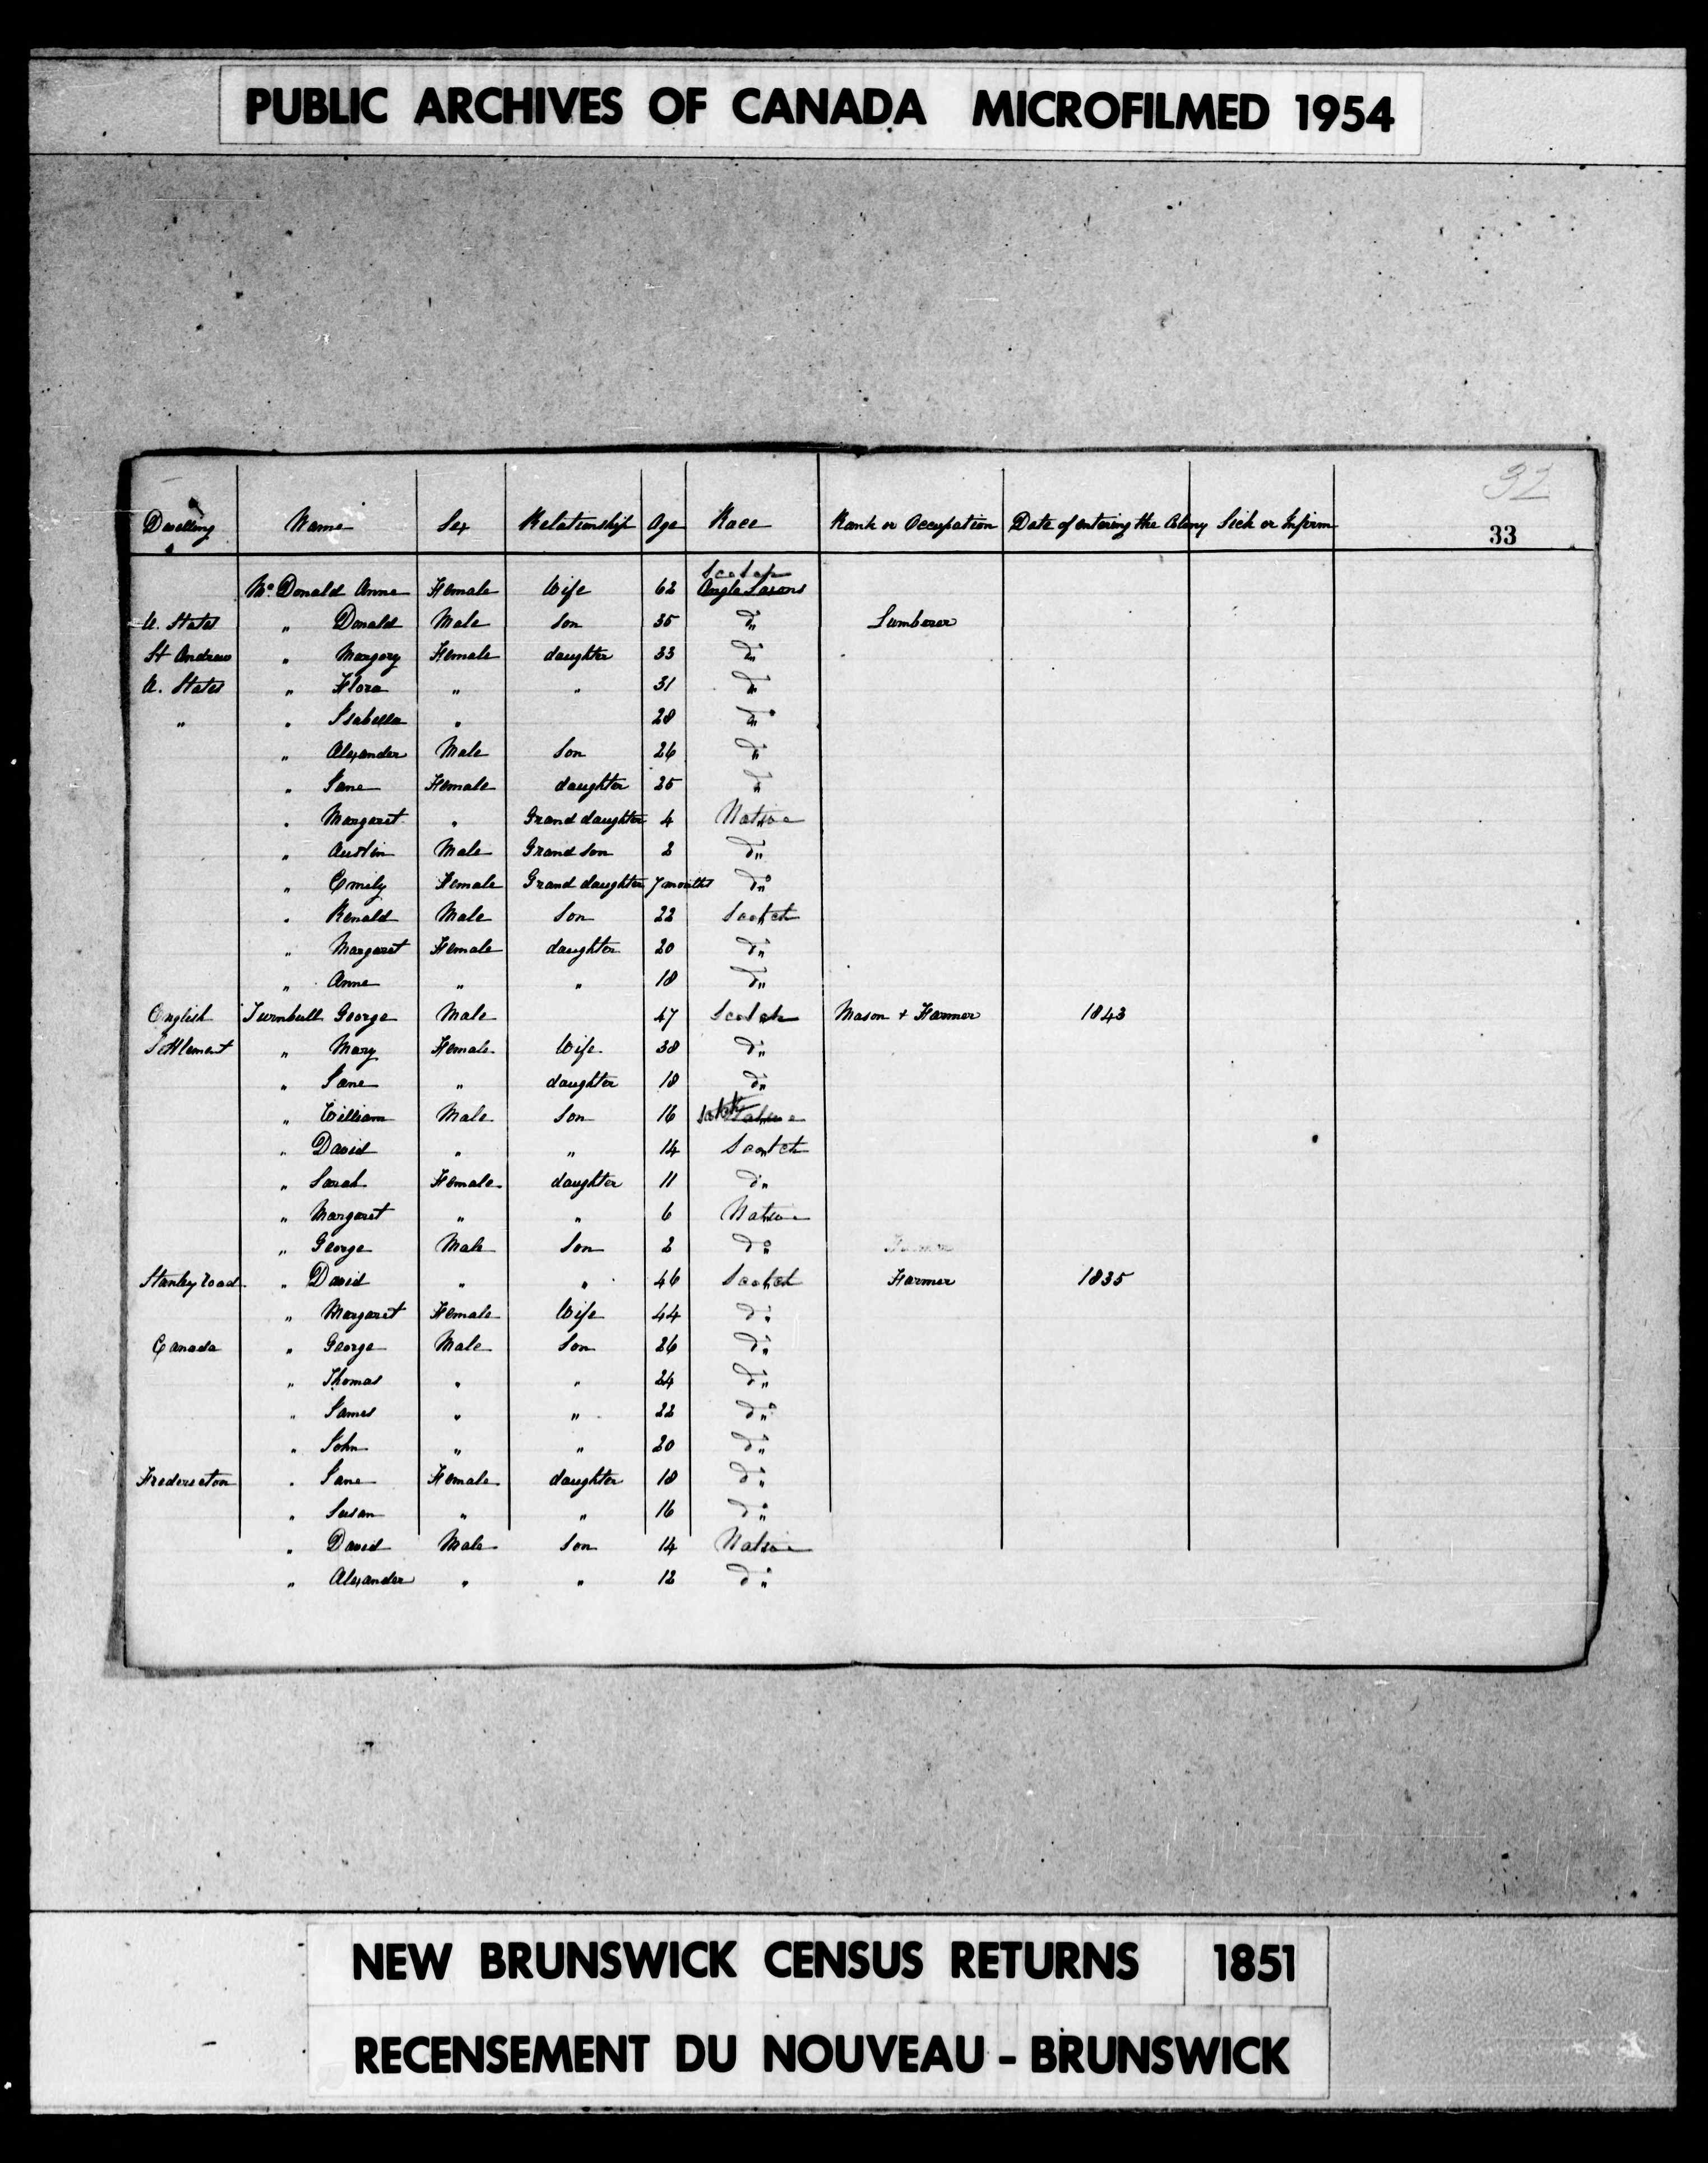 PUBLIC ARCHIVES OF CANADA MICROFILMED 1954
32
Dwelling Name Sex Relationship Age Race Rank or Occupation Date of entering the Colony Sick or Infirm
33
Scotch
Mc Donald Anne Female Wife 62 Anglo Saxons
U. States " Donald Male Son 35 do Lumberer
St Andrew " Margery Female daughter 33 do
U. States " Flora " " 31 do
" " Isabella " 28 do
" Alexander Male Son 26 do
" Jane Female daughter 25 do
" Margaret " Grand daughter 4 Native
" Austin Male Grand son 2 do
" Emily Female Grand daughter 7 months do
" Renald Male Son 22 Scotch
" Margaret Female daughter 20 do
" Anne " " 18 do
English Turnbull George Male 47 Scotch Mason + Farmer 1843
Settlement " Mary Female Wife 38 do
" Jane " daughter 18 do
" William Male Son 16 Scotch Native
" David " " 14 Scotch
" Sarah Female daughter 11 do
" Margaret " " 6 Native
" George Male Son 2 do
Stanley road " David " " 46 Scotch Farmer 1835
" Margaret Female Wife 44 do
Canada " George Male Son 26 do
" Thomas " " 24 do
" James " " 22 do
" John " " 20 do
Fredericton " Jane Female daughter 18 do
" Susan " " 16 do
" David Male Son 14 Native
" Alexander " " 12 do
NEW BRUNSWICK CENSUS RETURNS 1851
RECENSEMENT DU NOUVEAU-BRUNSWICK